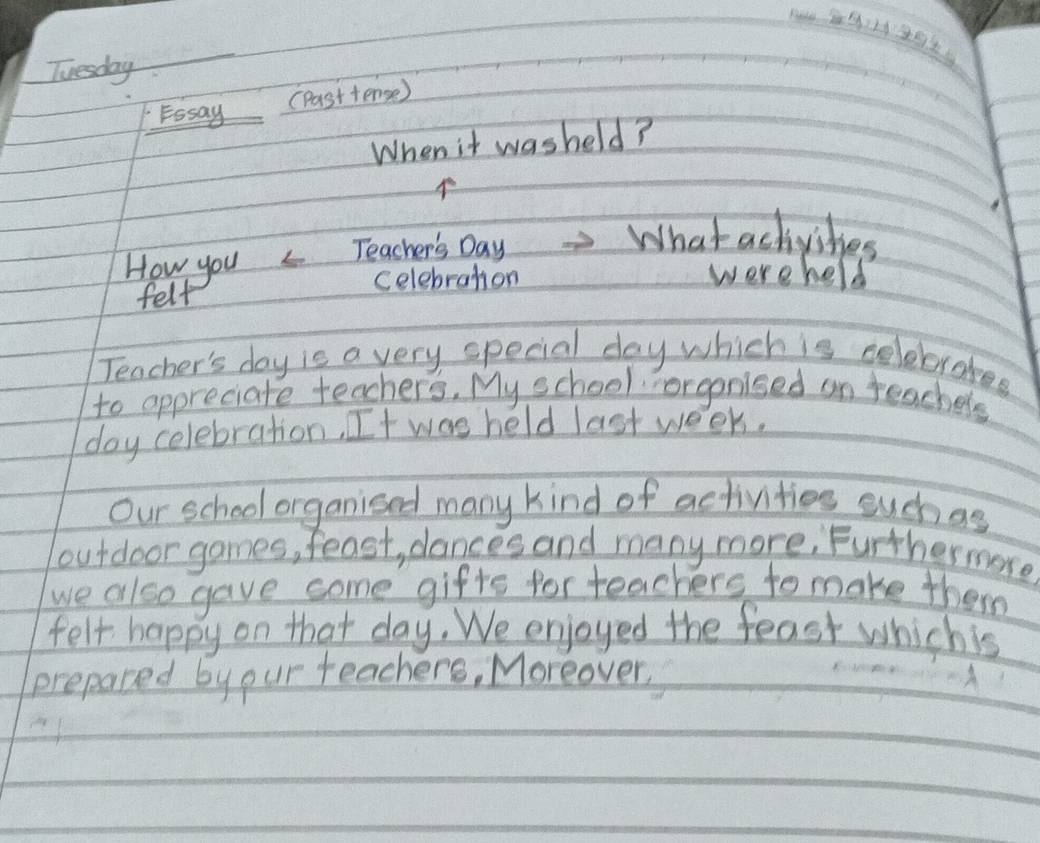 Tuesday
Essay (Past tense)
When it was held?
How you ← Teacher's Day → What activities
felt Celebration were held
Teacher's day is a very special day which is celebrates
to appreciate teachers. My school organised an teachers
day celebration. It was held last week.
Our school organised many kind of activities such as
outdoor games, feast, dances and many more. Furthermore
we also gave some gifts for teachers to make them
felt happy on that day. We enjoyed the feast which is
prepared by our teachers. Moreover,